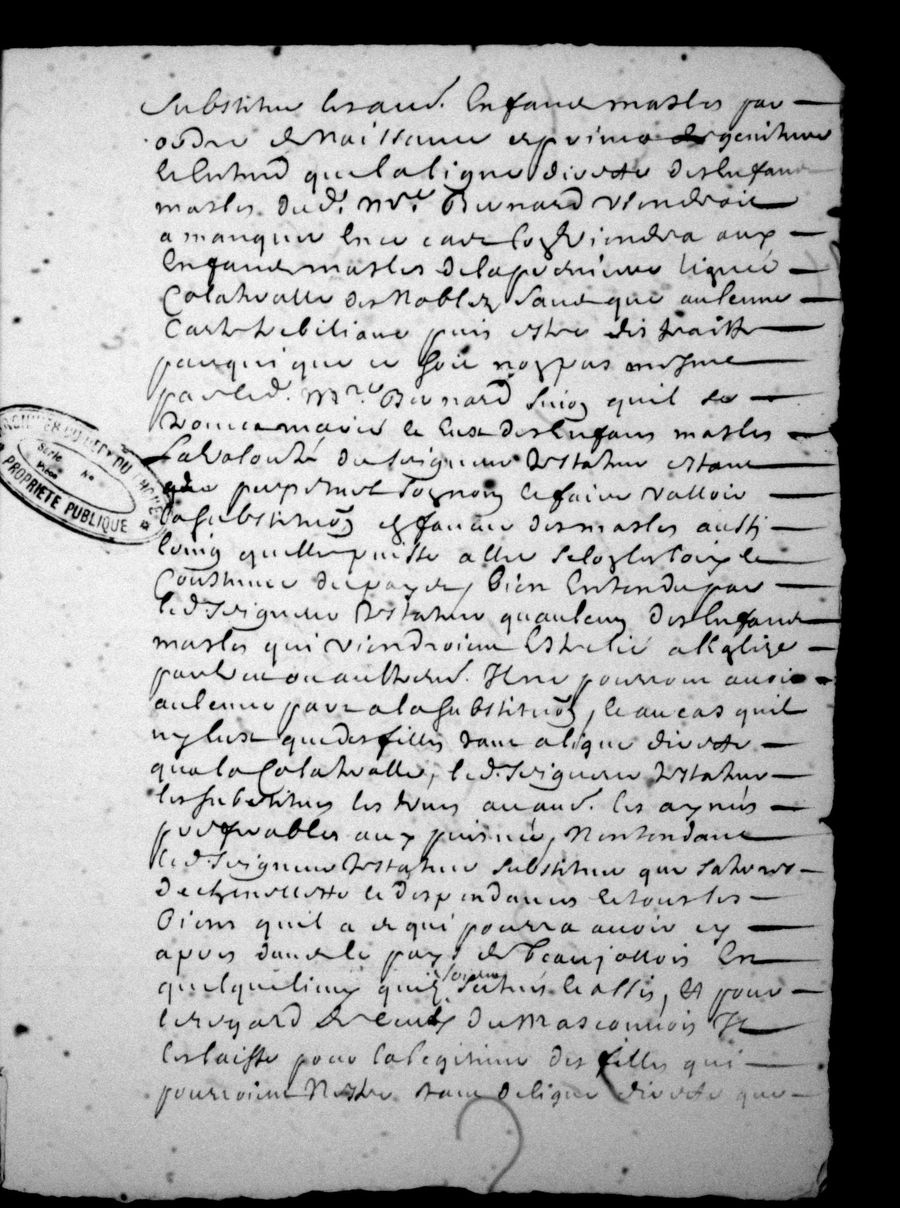 substitue lesaud. Enfans masles par
ordre de Naissance et primo de geniture
et entend que la ligne directe des Enfans
masles dud. Mre. Bernard viendroit
a manquer En ce cas les viendra aux
Enfans masles de la premiere lignée
Colateralle des Nobles sans que aulcune
Carte trebiliane puis estre distraitte
par qui que ce soit non pas mesme
par led. Mre. Bernard sinon quil se
la volonté du seigneur testateur estant
que perpetuel soy non et faire valloir
la substitution en faveur des masles aussi
loing quelle puisse aller selon les loix et
Coustume du pays, bien Entendu par
led. seigneur testateur quaulcun des Enfans
masles qui viendroient Estre lié a l'Eglise
par ou aultrem. Ilne pourront avoir
aulcune part a la substitution, et au cas quil
ny Eust que des filles tant a ligne directe
qua la Colateralle, led. seigneur testateur
les substitues les unes avant les aynés
preferables aux puisnés, Nentendant
led. seigneur testateur substituer que sa terre
de et despendances et tous les
Biens quil a et qui pourra avoir cy
apres dans le pays de Beaujollois En
quelque lieux quilz soient situés et assis, Et pour
le regard de ceux du Masconnois Il
les laisse pour la legitime des filles qui
pourroient Nestre tant de ligne directe que
ARCHIVES DU DEPT DU RHONE
Série No
PROPRIETE PUBLIQUE